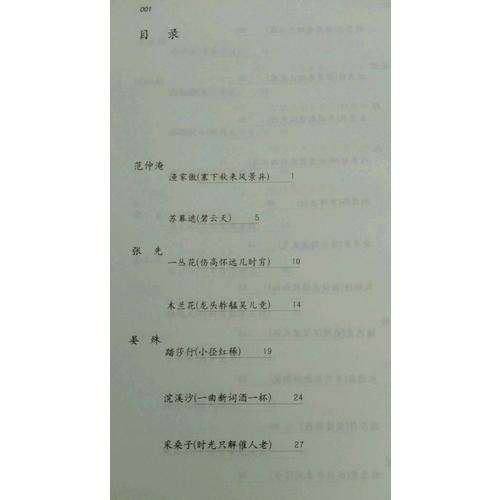 001
目 录
范仲淹
渔家傲(塞下秋来风景异) 1
苏幕遮(碧云天) 5
张 先
一丛花(伤高怀远几时穷) 10
木兰花(龙头舴艋吴儿竞) 14
晏 殊
踏莎行(小径红稀) 19
浣溪沙(一曲新词酒一杯) 24
采桑子(时光只解催人老) 27